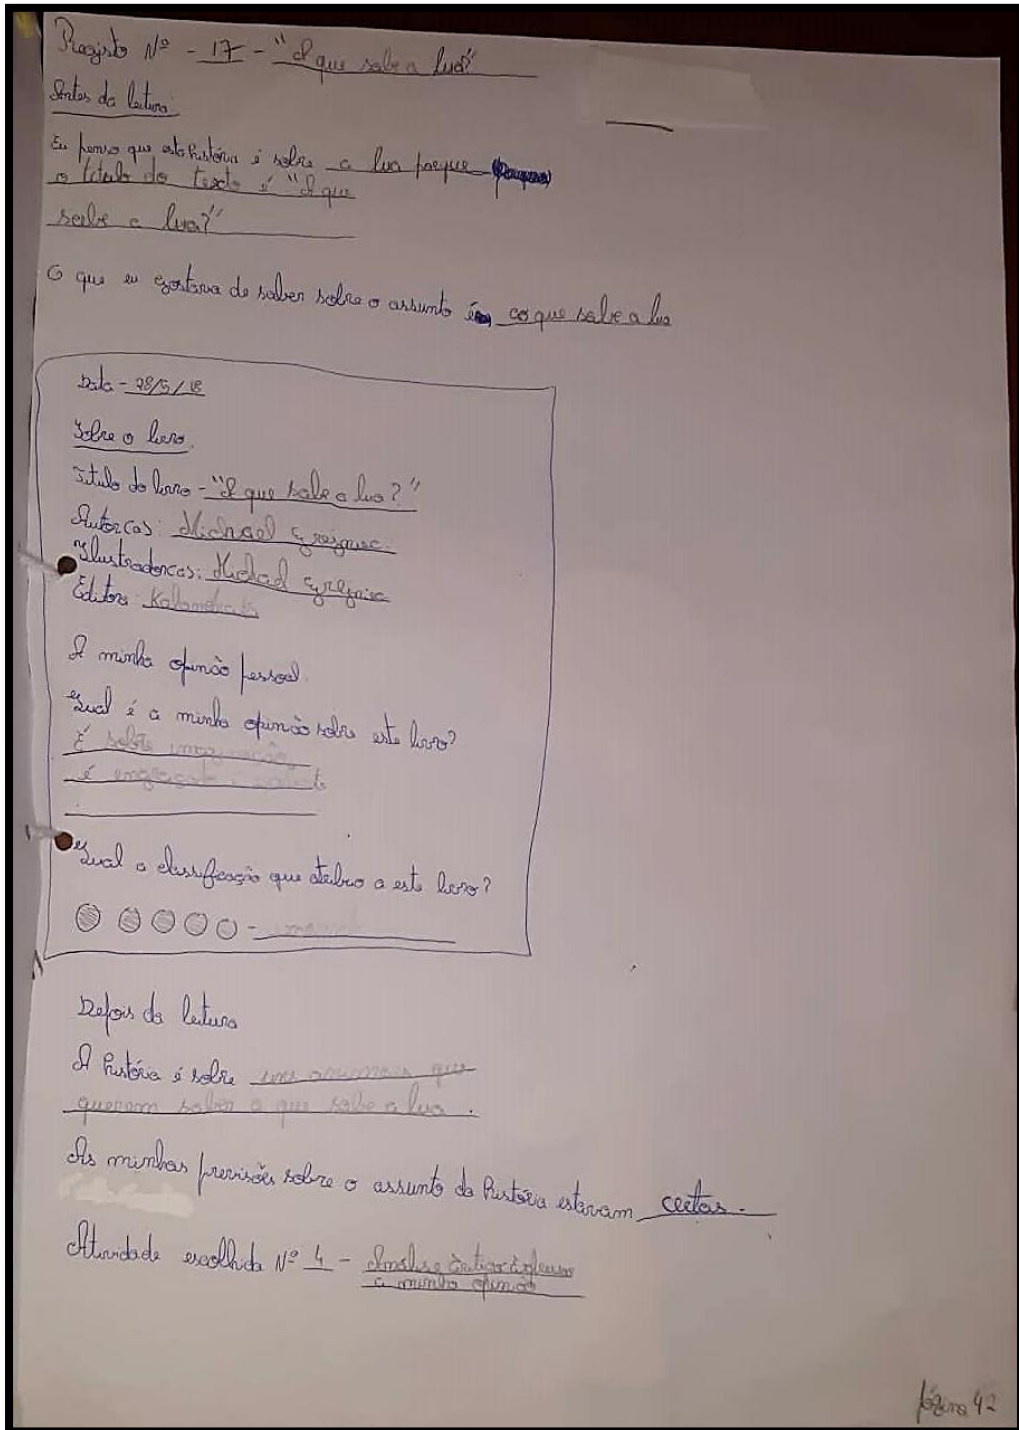 Projeto Nº - 17 - "A que sabe a lua?"
Antes da leitura:
Eu penso que esta história é sobre a lua porque
o título do texto é "A que
sabe a lua?"
O que eu gostava de saber sobre o assunto é a que sabe a lua
Data - 28/5/18
Sobre o livro.
Título do livro - "A que sabe a lua?"
Autor(as): Michael Grejniec.
Ilustrador(as): Michael Grejniec
Editora: Kalandraka
A minha opinão pessoal.
Qual é a minha opinão sobre este livro?
É sobre imaginação,
é engraçado
Qual a classificação que atribuo a este livro?
Depois da leitura
A história é sobre uns animais que
queram saber a que sabe a lua.
As minhas previsões sobre o assunto da história estavam certas.
Atividade escolhida Nº 4 - Análise crítica
a minha opinão
página 42